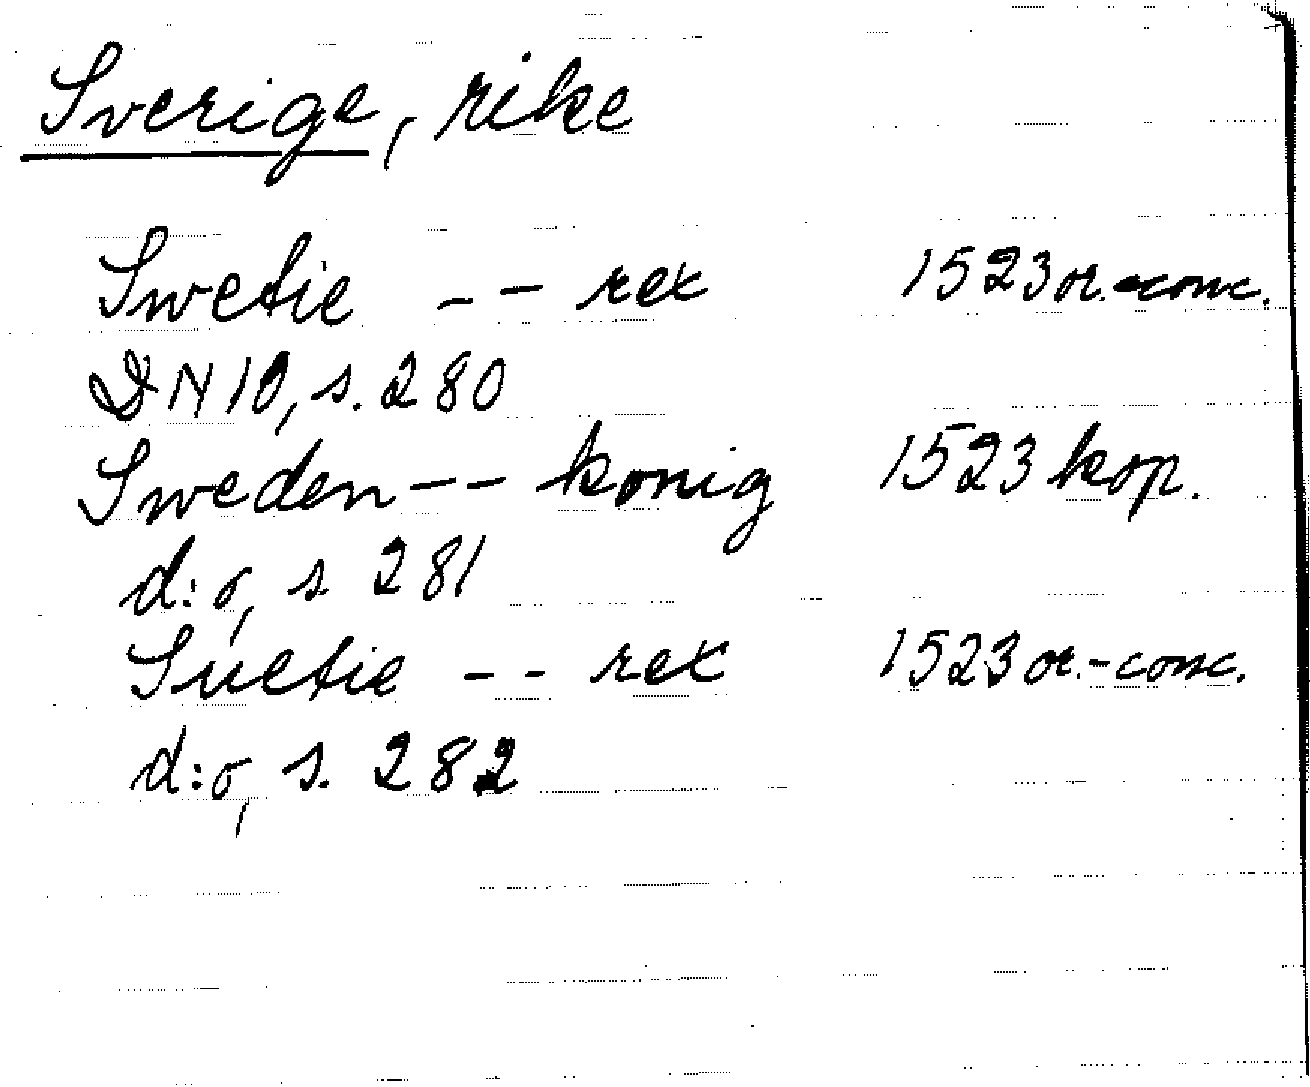 Sverige, rike
Swetie -- rex 1523 or.-conc.
DN 10, s. 280
Sweden -- konig 1523 kop.
d:o, s 281
Suetie -- rex 1523 or.-conc.
d:o, s. 282